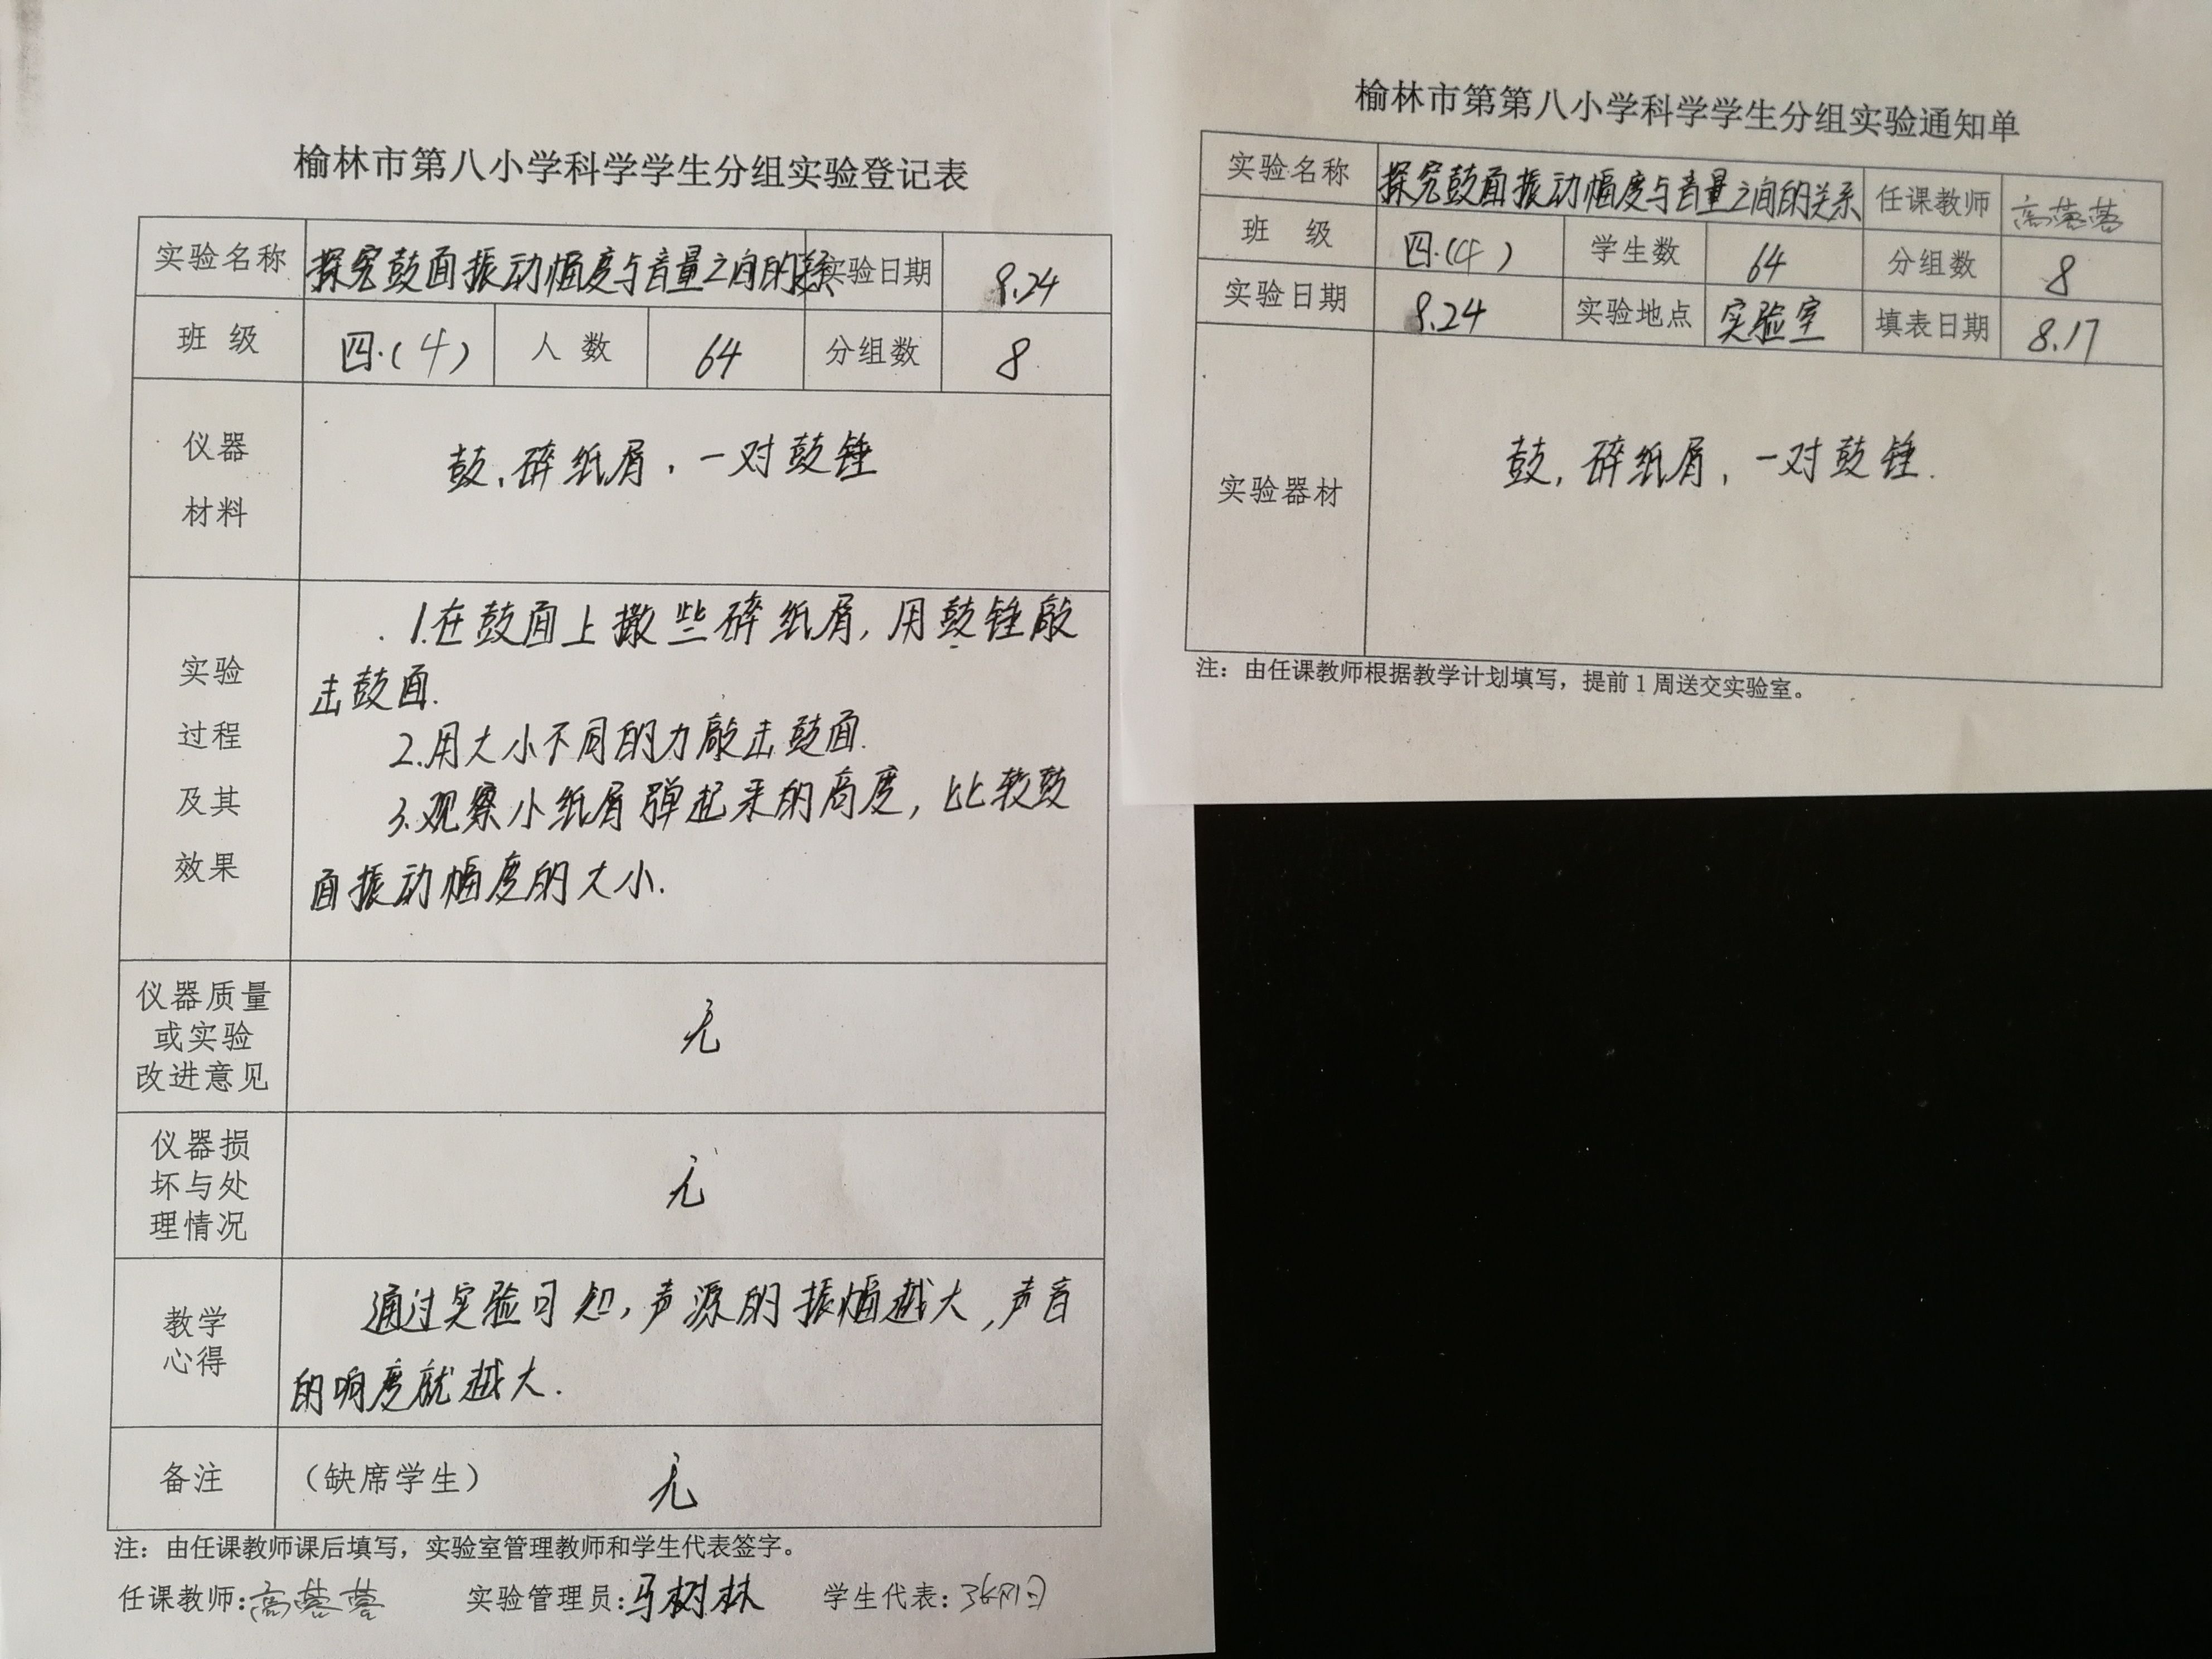 榆林市第八小学科学学生分组实验登记表
实验名称 探究鼓面振动幅度与音量之间的关系 实验日期 9.24
班 级 四.(4) 人 数 64 分组数 8
仪器
材料
鼓,碎纸屑,一对鼓锤
实验
过程
及其
效果
1.在鼓面上撒些碎纸屑,用鼓锤敲
击鼓面.
2.用大小不同的力敲击鼓面.
3.观察小纸屑弹起来的高度,比较鼓
面振动幅度的大小.
仪器质量
或实验
改进意见
无
仪器损
坏与处
理情况
无
教学
心得
通过实验可知,声源的振幅越大,声音
的响度就越大.
备注 (缺席学生) 无
注：由任课教师课后填写，实验室管理教师和学生代表签字。
任课教师:高蓉蓉 实验管理员:马树林 学生代表:
榆林市第第八小学科学学生分组实验通知单
实验名称 探究鼓面振动幅度与音量之间的关系 任课教师 高蓉蓉
班 级 四.(4) 学生数 64 分组数 8
实验日期 9.24 实验地点 实验室 填表日期 8.17
实验器材 鼓,碎纸屑,一对鼓锤.
注：由任课教师根据教学计划填写，提前1周送交实验室。